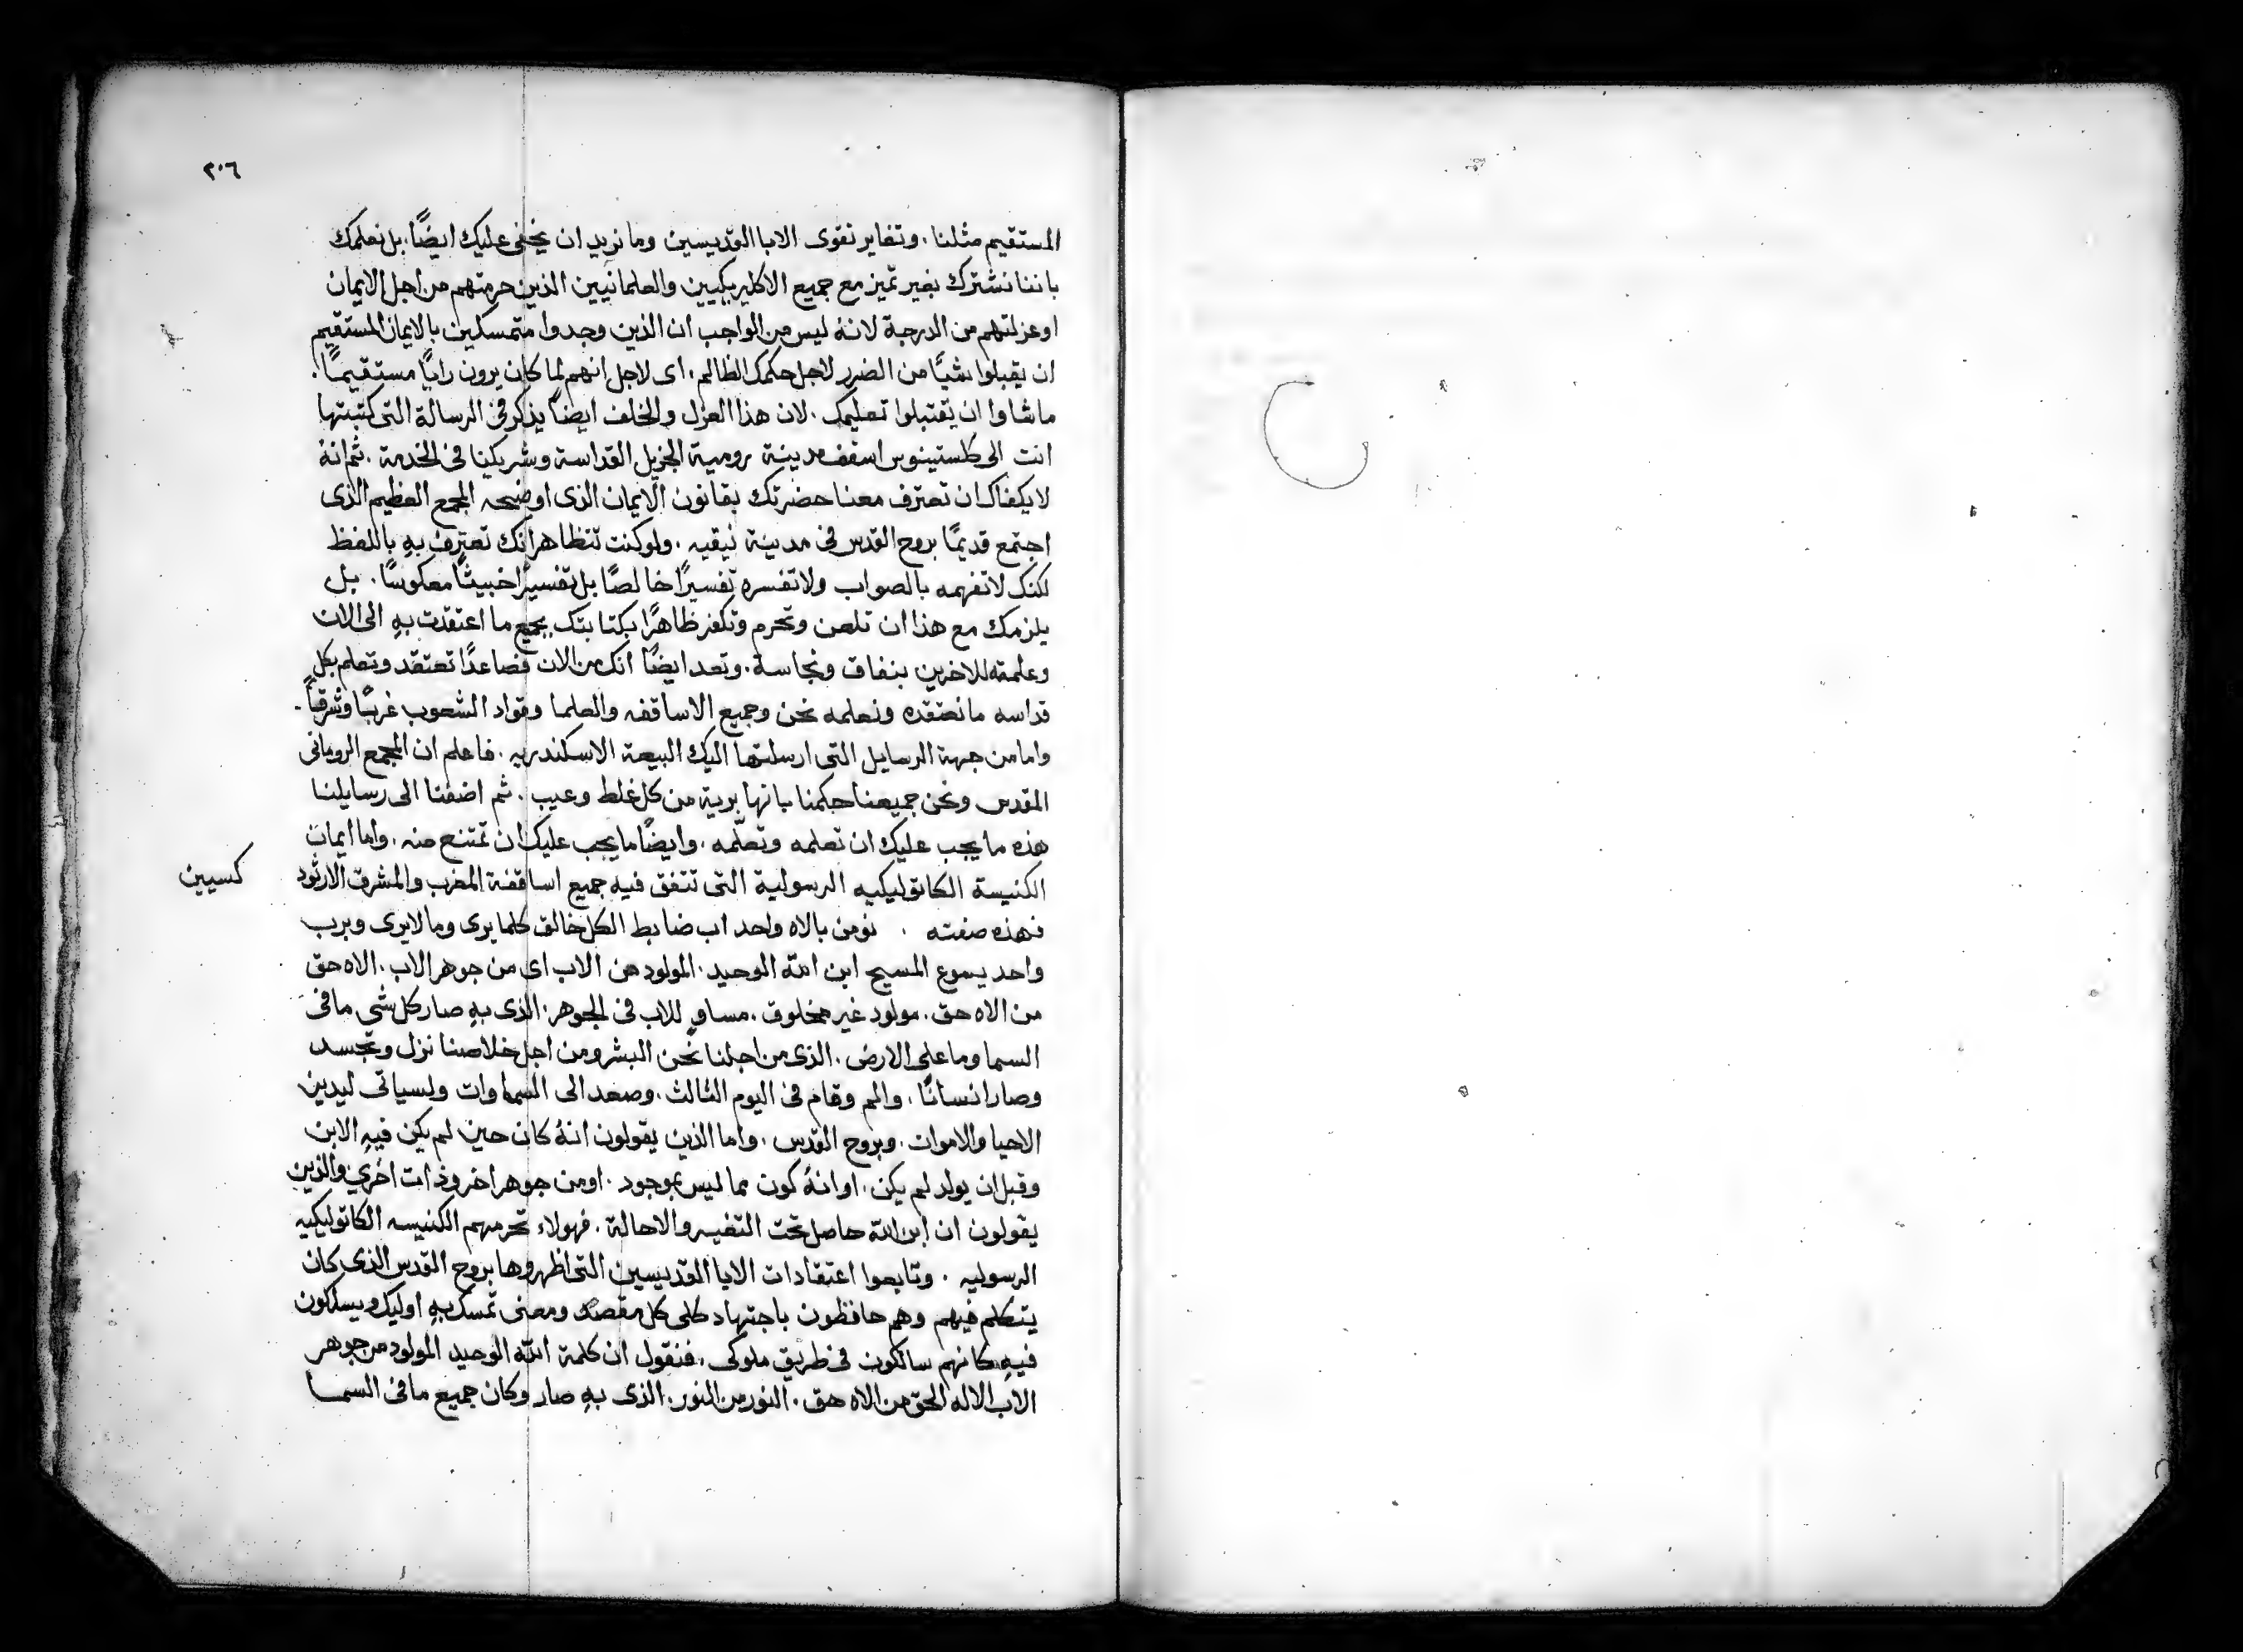 ٢٠٦
المستقيم مثلنا . وتغاير تقوى الابا القديسين وما نريد ان يخفى عليك ايضًا . بل نعلمك
باننا نشترك بغير تميز مع جميع الاكليريكيين والعلمانيين الذين حرمتهم من اجل الايمان
او عزلتهم من الدرجة لانهُ ليس من الواجب ان الذين وجدوا متمسكين بالايمان المستقيم
ان يقبلوا شيًا من الضرر لاجل حكمك الظالم . اى لاجل انهم لما كان يرون رايًا مستقيمًا .
ما شاوا ان يقتبلوا تعليمك . لان هذا العزل والخلف ايضًا يذكر فى الرسالة التى كتبتها
انت الى كلستينوس اسقف مدينة رومية الجزيل القداسة وشريكنا فى الخدمة . ثم انهُ
لا يكفاك ان تعترف معنا حضرتك بقانون الايمان الذى اوضحه المجمع العظيم الذى
اجتمع قديمًا بروح القدس فى مدينة نيقيه . ولو كنت تتظاهر انك تعترف بهِ باللفظ
لكنك لا تفهمه بالصواب ولا تفسره تفسيرًا خالصًا بل تفسيرًا خبيثًا معكوسًا . بل
يلزمك مع هذا ان تلعن وتحرم وتكفر ظاهرًا بكتابتك بجميع ما اعتقدت بهِ الى الان
وعلمته للاخرين بنفاق ونجاسة . وتعد ايضًا انك من الان فصاعدًا تعتقد وتعلم بكل
قداسه ما نعتقده ونعلمه نحن وجميع الاساقفه والعلما وقواد الشعوب غربًا وشرقًا .
واما من جهة الرسايل التى ارسلتها اليك البيعة الاسكندريه . فاعلم ان المجمع الرومانى
المقدس ونحن جميعنا حكمنا بانها برية من كل غلط وعيب . ثم اضفنا الى رسايلنا
هذه ما يجب عليك ان تعلمه وتعلّمه . وايضًا ما يجب عليك ان تمتنع منه . واما ايمان
الكنيسة الكاتوليكيه الرسولية التى تتفق فيه جميع اساقفة المغرب والمشرق الارثود
كسيين
فهذه صفته . نومن بالاه واحد اب ضابط الكل خالق كلما يرى وما لا يرى وبرب
واحد يسوع المسيح ابن الله الوحيد . المولود من الاب اى من جوهر الاب . الاه حق
من الاه حق . مولود غير مخلوق . مساوٍ للاب فى الجوهر . الذى بهِ صار كل شى ما فى
السما وما على الارض . الذى من اجلنا نحن البشر ومن اجل خلاصنا نزل وتجسد
وصار انسانًا . والم وقام فى اليوم الثالث . وصعد الى السماوات وليسياتى ليدين
الاحيا والاموات . وبروح القدس . واما الذين يقولون انهُ كان حين لم يكن فيهِ الابن
وقبل ان يولد لم يكن . او انهُ كون مما ليس بموجود . او من جوهر اخر وذات اخرى والذين
يقولون ان ابن الله حاصل تحت التغيير والاحالة . فهولاء تحرمهم الكنيسه الكاتوليكيه
الرسوليه . وتابعوا اعتقادات الابا القديسين التى اظهروها بروح القدس الذى كان
يتكلم فيهم وهم حافظون باجتهاد كلى كل مقصد ومعنى تمسك بهِ اوليك ويسلكون
فيهِ كانهم سالكون فى طريق ملوكى . فنقول ان كلمة الله الوحيد المولود من جوهر
الاب الاله الحق من الاه حق . النور من النور . الذى بهِ صار وكان جميع ما فى السما